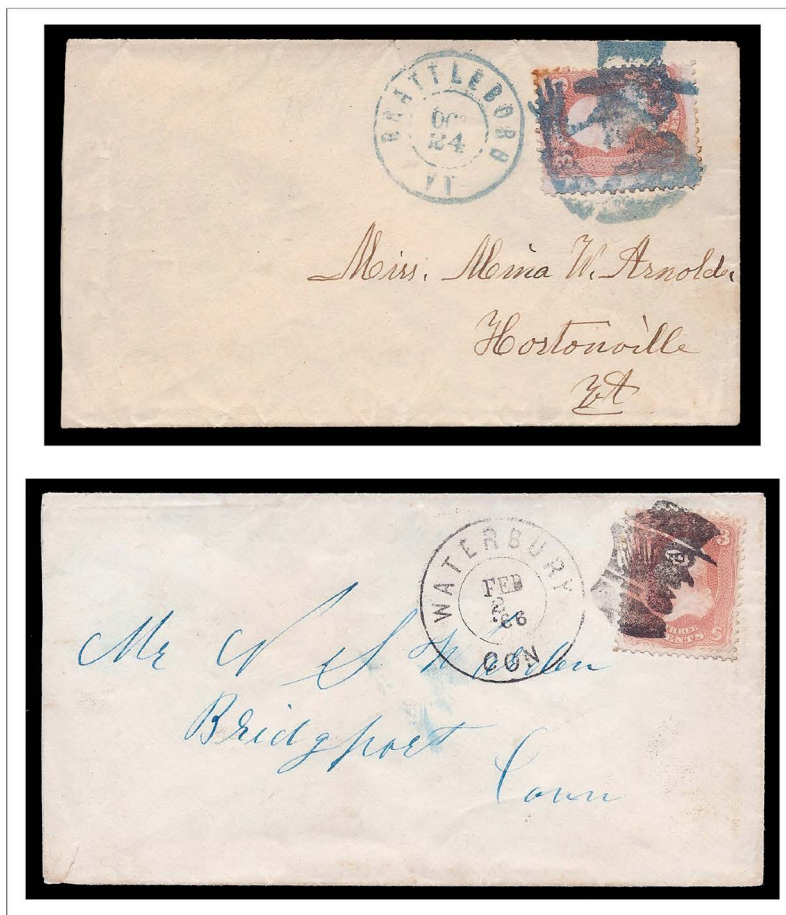 BRATTLEBORO
OCT
24
VT
3
Miss. Mina W. Arnold.
Hortonville
Vt
WATERBURY
FEB
2
66
CON
3
THREE
CENTS
Mr N S
Bridgport
Conn